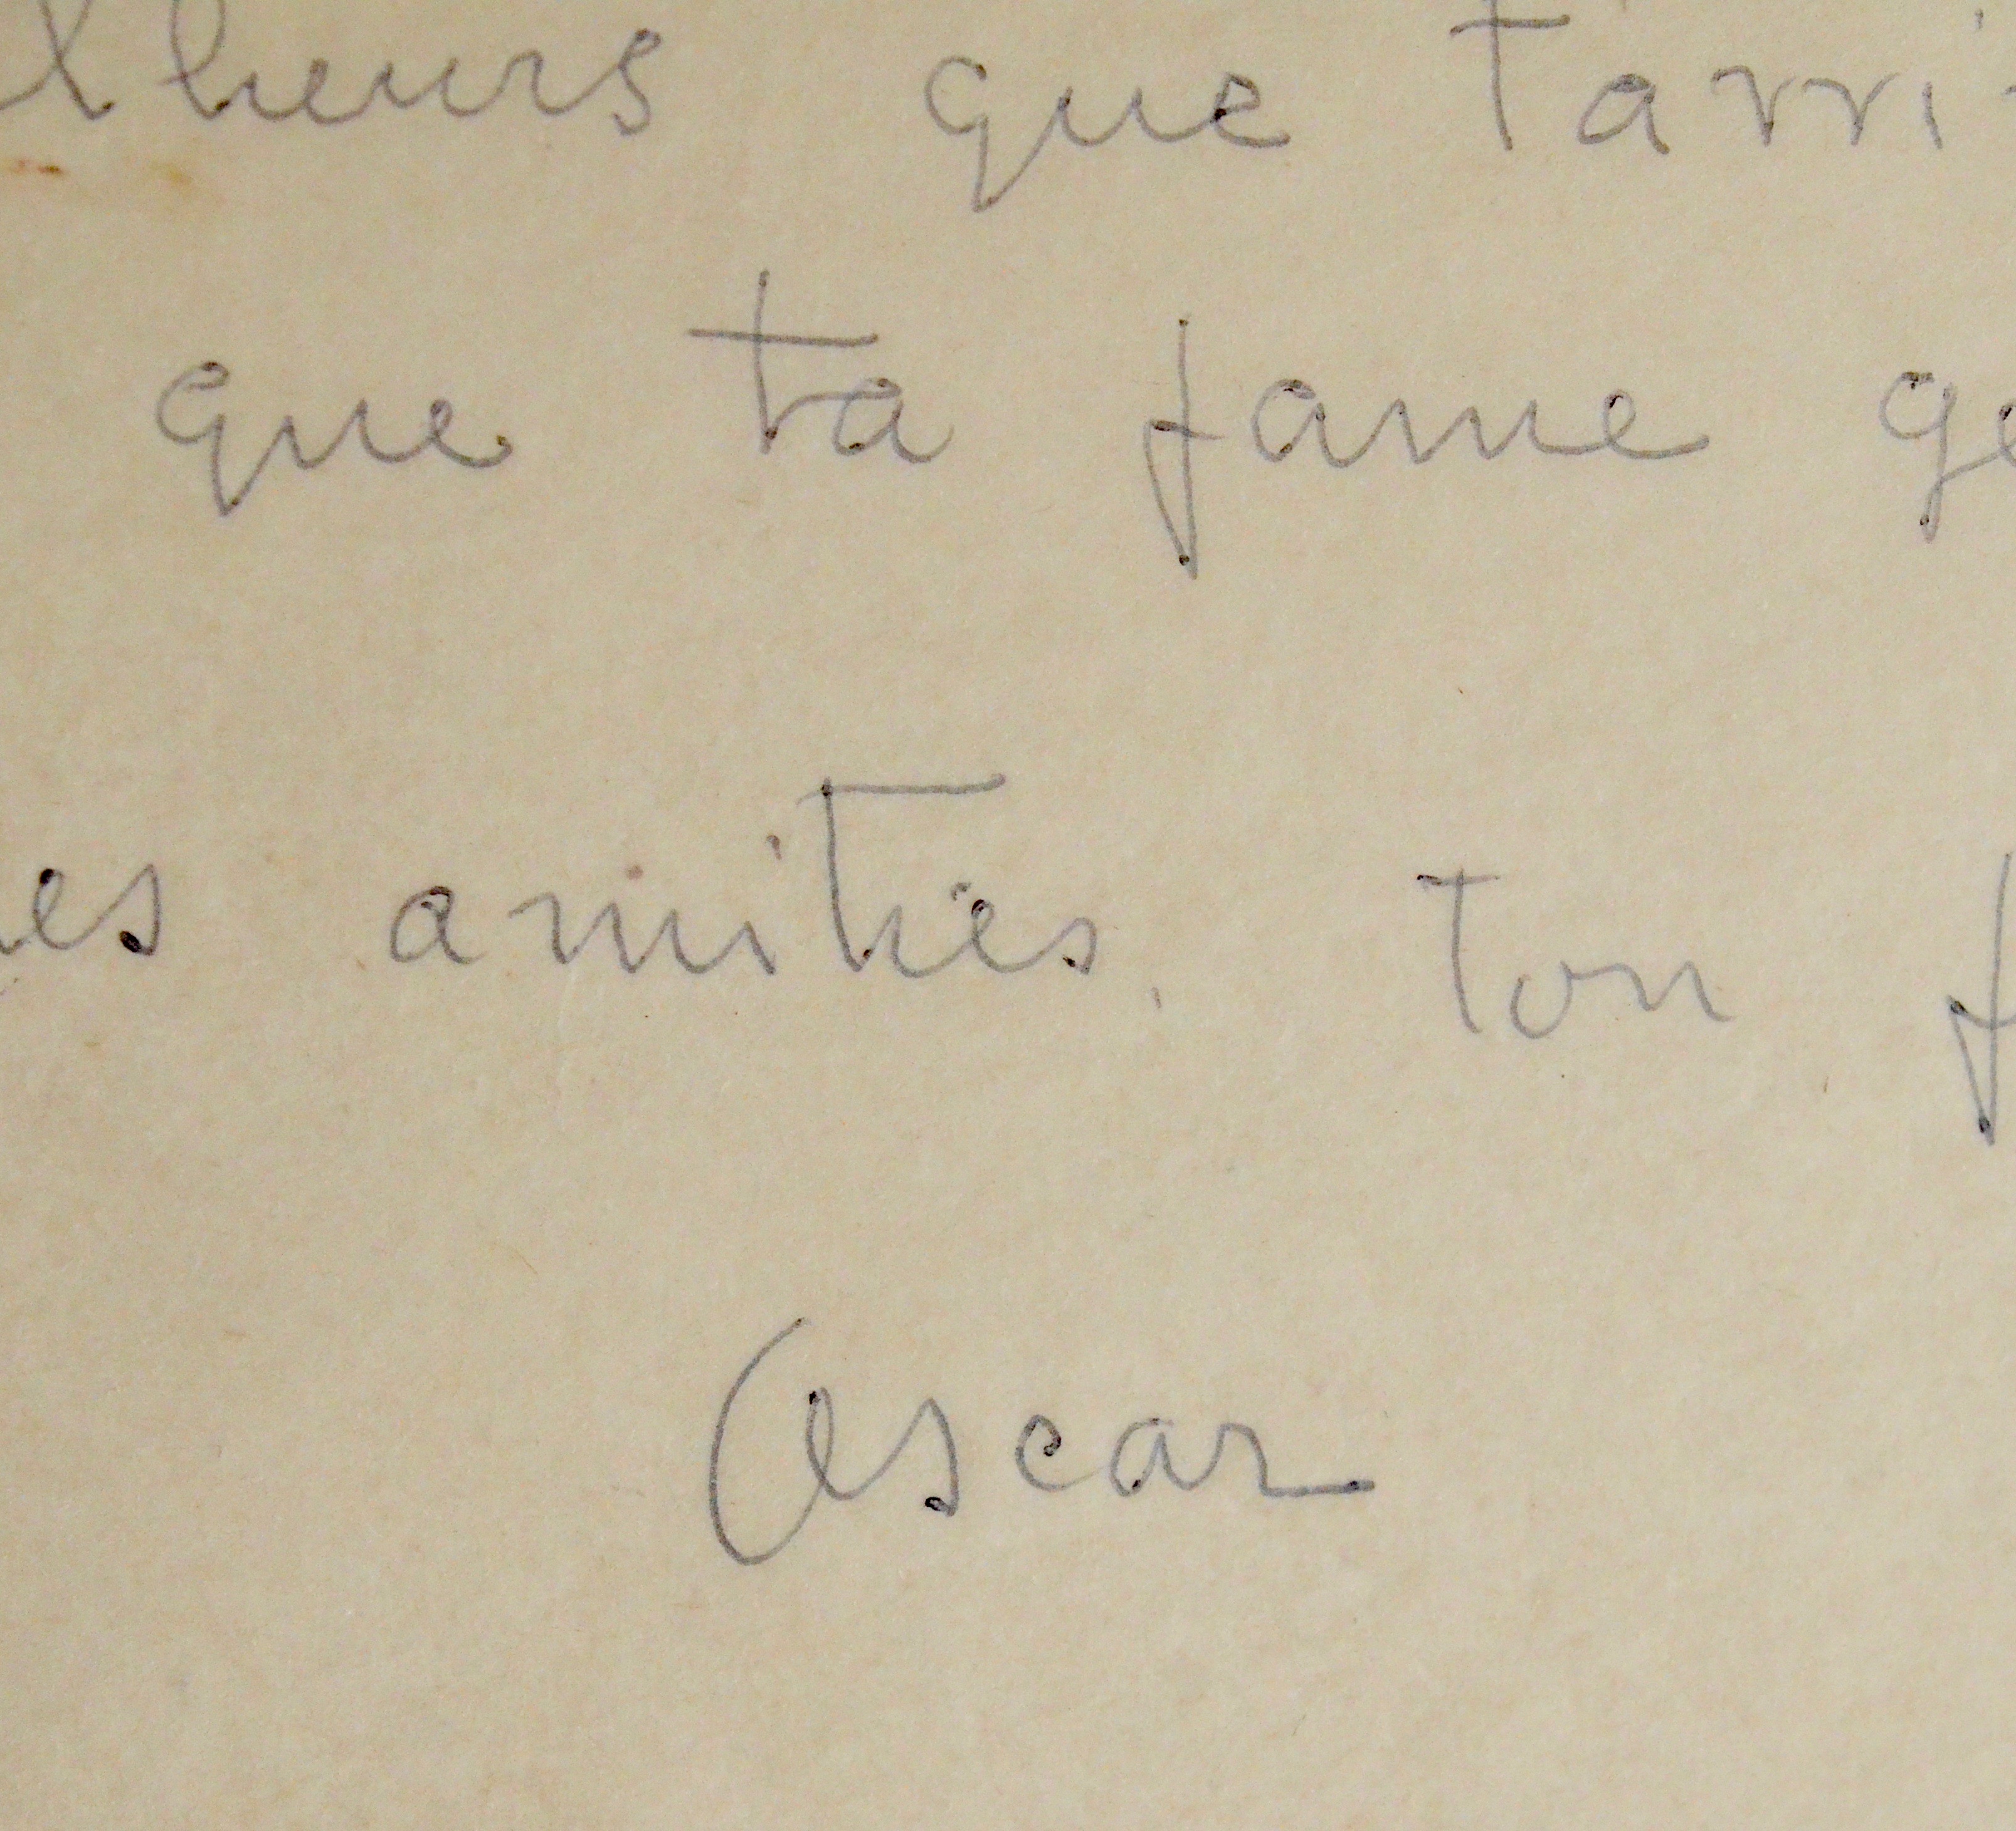 lheurs que tarri
que ta fame ge
es amitiés. ton f
Oscar